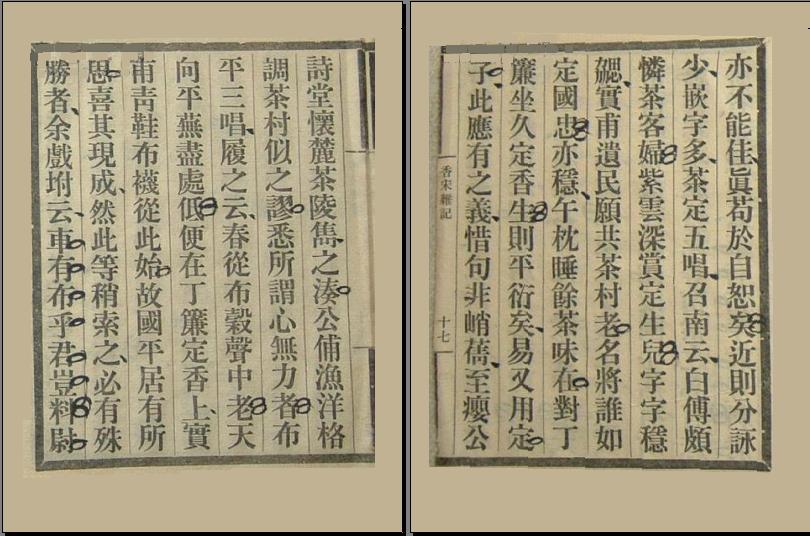 亦不能佳眞苟於自恕矣近則分詠
少嵌字多茶定五唱召南云白傅頗
憐茶客婦紫雲深賞定生兒字字穩
愢實甫遺民願共茶村老名將誰如
定國忠亦穩午枕睡餘茶味在對丁
簾坐久定香生則平衍矣易又用定
子此應有之義惜句非峭蒨至癭公
香宋雜記
十七
詩堂懷麓茶陵雋之湊公俌漁洋格
調茶村似之謬悉所謂心無力者布
平三唱履之云春從布穀聲中老天
向平蕪盡處低便在丁簾定香上實
甫靑鞋布襪從此始故國平居有所
思喜其現成然此等稍索之必有殊
勝者余戲坿云車有布乎君豈料尉